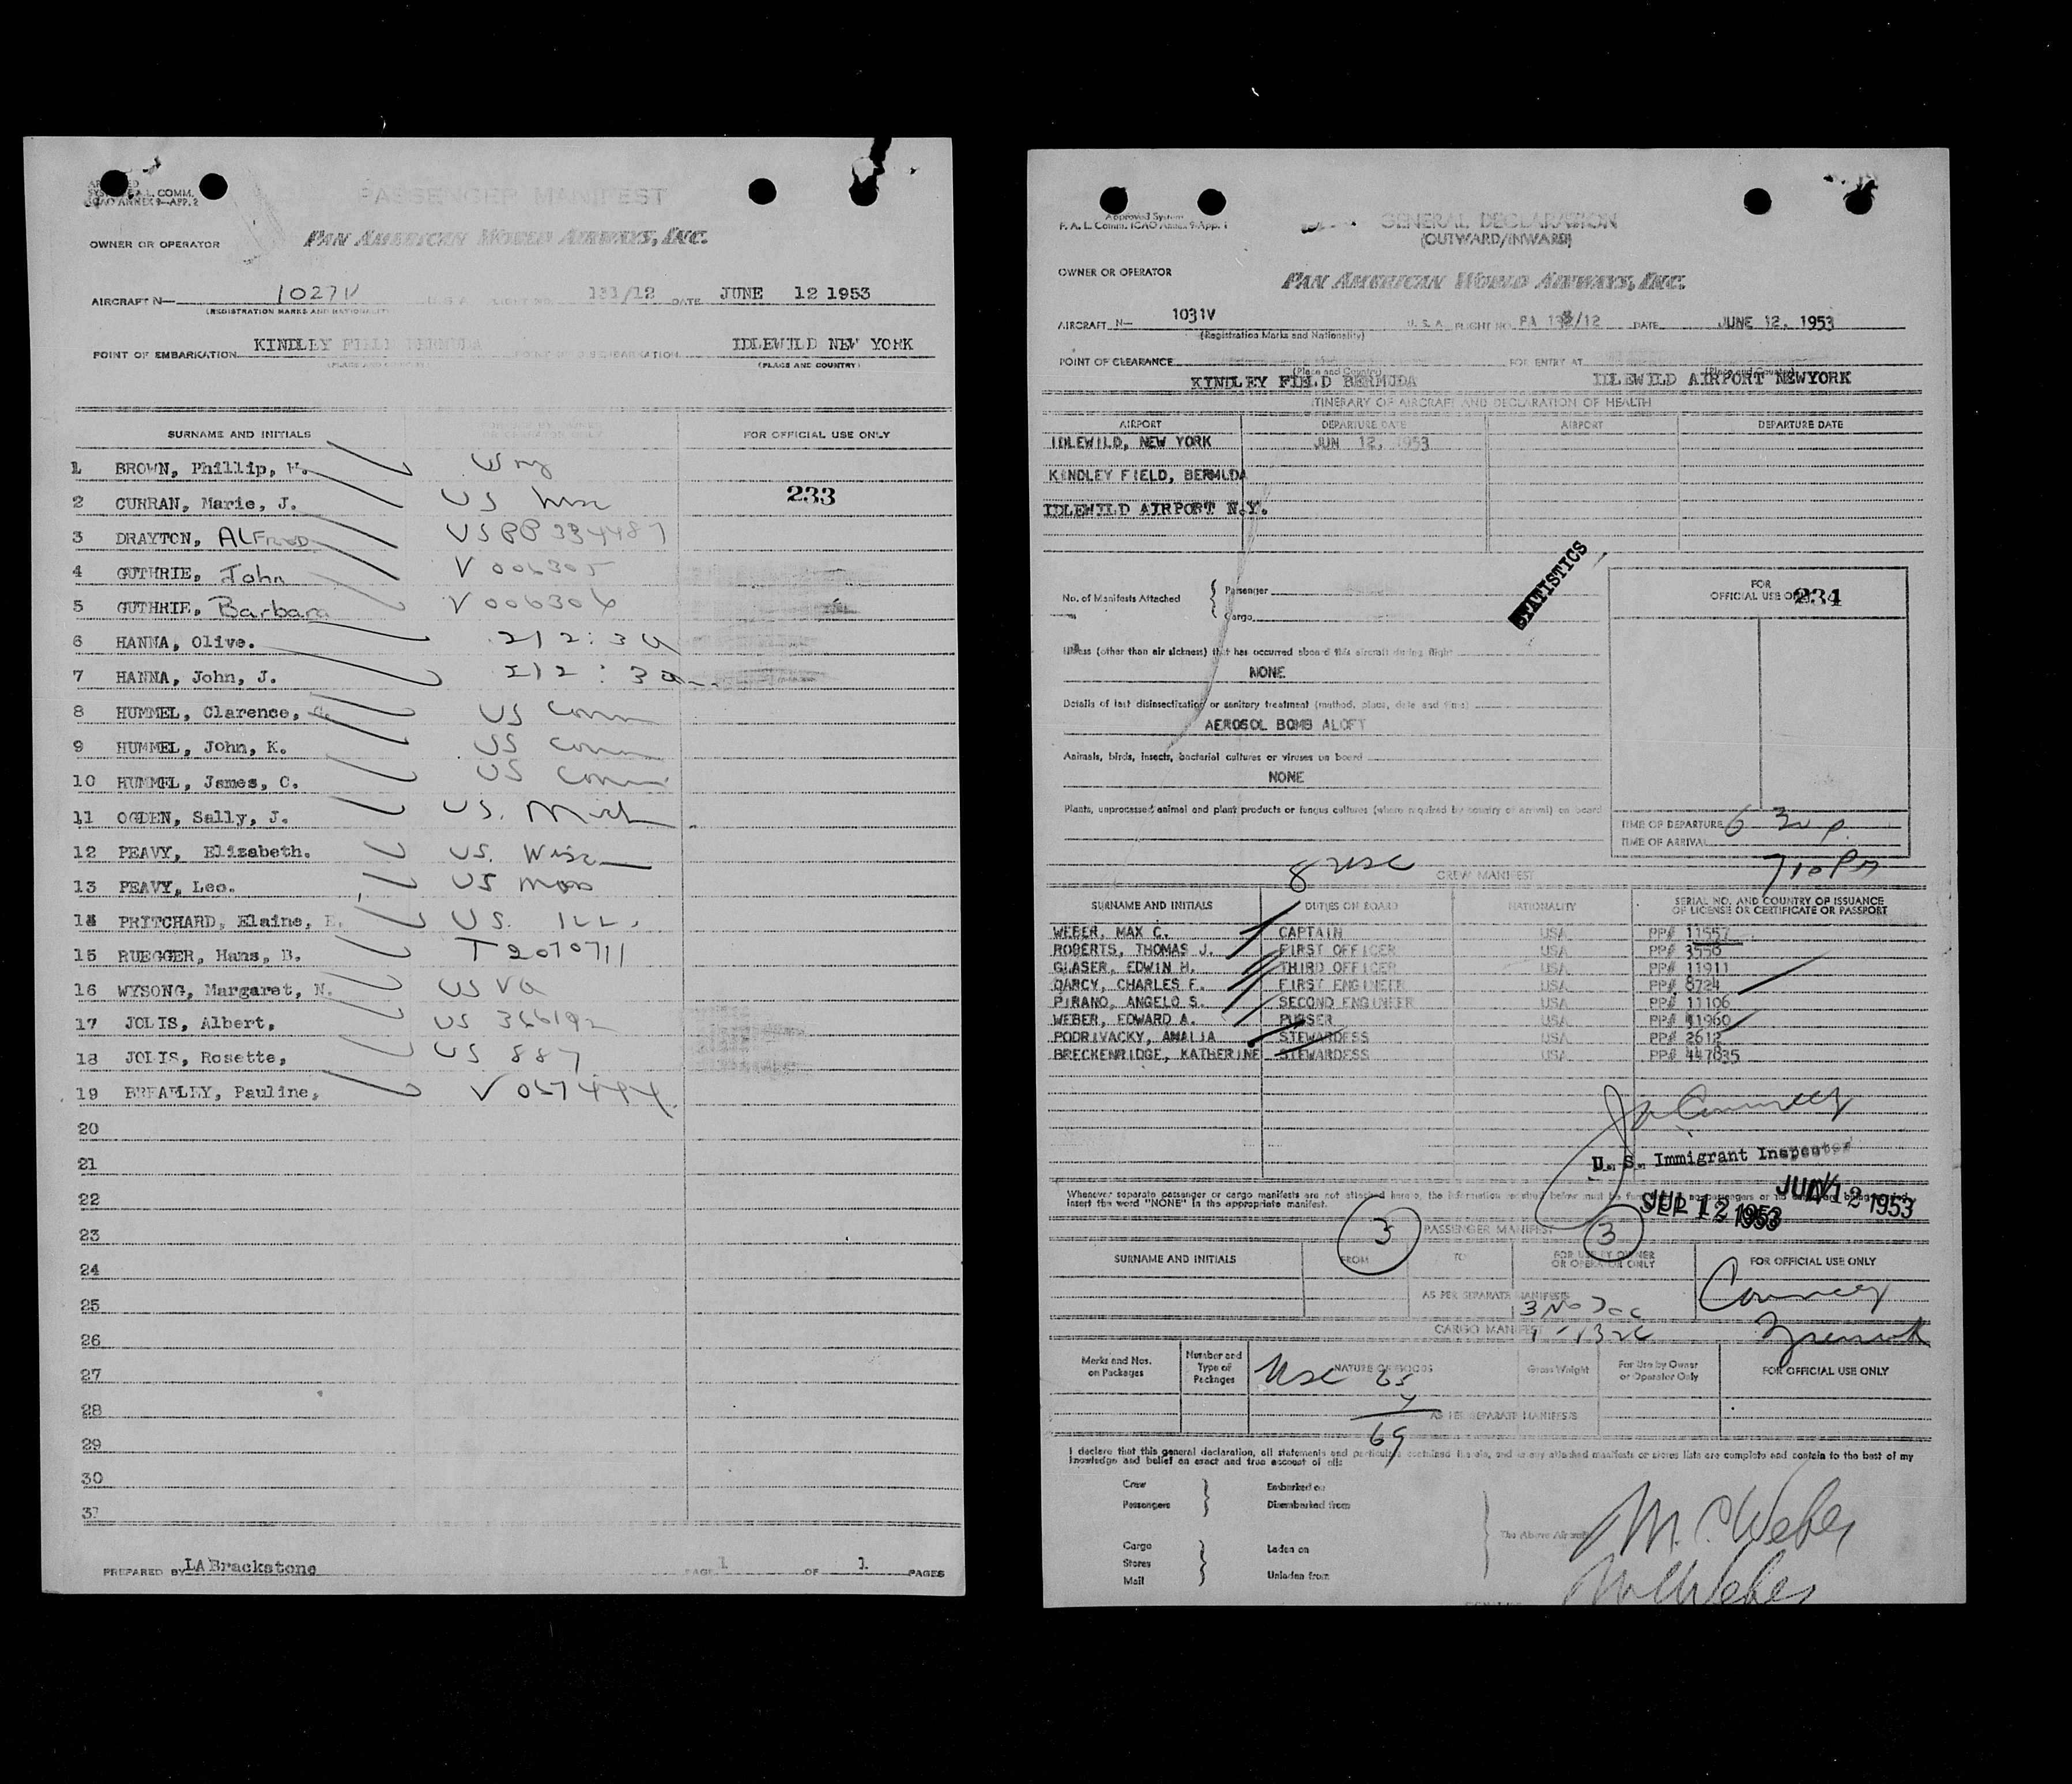 SYSTEM F.A.L. COMM.
ICAO ANNEX 9-APP. 2
PASSENGER MANIFEST
OWNER OR OPERATOR PAN AMERICAN WORLD AIRWAYS, INC.
AIRCRAFT N— 1027V U.S.A. FLIGHT NO. 131/12 DATE JUNE 12 1953
(REGISTRATION MARKS AND NATIONALITY)
POINT OF EMBARKATION KINDLEY FIELD BERMUDA POINT OF DISEMBARKATION IDLEWILD NEW YORK
(PLACE AND COUNTRY) (PLACE AND COUNTRY)
SURNAME AND INITIALS FOR USE BY OWNER OR OPERATOR ONLY FOR OFFICIAL USE ONLY
1 BROWN, Phillip, W. US ny
2 CURRAN, Marie, J. US 233
3 DRAYTON, ALFRED US PP 334487
4 GUTHRIE, John V 006305
5 GUTHRIE, Barbara V 006306
6 HANNA, Olive. 212:3a
7 HANNA, John, J. 212:3a
8 HUMMEL, Clarence, US Conn
9 HUMMEL, John, K. US Conn
10 HUMMEL, James, C. US Conn
11 OGDEN, Sally, J. US. Mich
12 PEAVY, Elizabeth. US. Wisc
13 PEAVY, Leo. US mass
14 PRITCHARD, Elaine, E. US. ILL.
15 RUEGGER, Hans, B. T 2070711
16 WYSONG, Margaret, N. US VA
17 JOLIS, Albert, US 366192
18 JOLIS, Rosette, US 887
19 BREARLEY, Pauline, V 067444
20
21
22
23
24
25
26
27
28
29
30
31
PREPARED BY LA Brackstone PAGE 1 OF 1 PAGES
Approved System
F. A. L. Comm. ICAO Annex 9-App. 1
GENERAL DECLARATION
(OUTWARD/INWARD)
OWNER OR OPERATOR
PAN AMERICAN WORLD AIRWAYS, INC.
AIRCRAFT N— 1031V U.S.A. FLIGHT NO. PA 133/12 DATE JUNE 12, 1953
(Registration Marks and Nationality)
POINT OF CLEARANCE FOR ENTRY AT
(Place and Country) (Place and Country)
KINDLEY FIELD BERMUDA IDLEWILD AIRPORT NEWYORK
ITINERARY OF AIRCRAFT AND DECLARATION OF HEALTH
AIRPORT DEPARTURE DATE AIRPORT DEPARTURE DATE
IDLEWILD, NEW YORK JUN 12, 1953
KINDLEY FIELD, BERMUDA
IDLEWILD AIRPORT N.Y.
STATISTICS
No. of Manifests Attached { Passenger
{ Cargo
FOR
OFFICIAL USE ONLY 234
Illness (other than air sickness) that has occurred aboard this aircraft during flight
NONE
Details of last disinsectization or sanitary treatment (method, place, date and time)
AEROSOL BOMB ALOFT
Animals, birds, insects, bacterial cultures or viruses on board
NONE
Plants, unprocessed animal and plant products or fungus cultures (where required by country of arrival) on board
TIME OF DEPARTURE 6 30 p.
TIME OF ARRIVAL 710 Pm
8 usc
CREW MANIFEST
SURNAME AND INITIALS DUTIES ON BOARD NATIONALITY SERIAL NO. AND COUNTRY OF ISSUANCE OF LICENSE OR CERTIFICATE OR PASSPORT
WEBER, MAX C. CAPTAIN USA PP# 11557
ROBERTS, THOMAS J. FIRST OFFICER USA PP# 3556
GLASER, EDWIN H. THIRD OFFICER USA PP# 11911
DARCY, CHARLES F. FIRST ENGINEER USA PP# 8724
PIRANO, ANGELO S. SECOND ENGINEER USA PP# 11106
WEBER, EDWARD A. PURSER USA PP# 11960
PODRIVACKY, AMALIA STEWARDESS USA PP# 2612
BRECKENRIDGE, KATHERINE STEWARDESS USA PP# 447835
U. S. Immigrant Inspector
Whenever separate passenger or cargo manifests are not attached hereto, the information
insert the word "NONE" in the appropriate manifest.
JUN 12 1953
12 1953
3 PASSENGER MANIFEST 3
SURNAME AND INITIALS FROM TO FOR USE BY OWNER OR OPERATOR ONLY FOR OFFICIAL USE ONLY
AS PER SEPARATE MANIFESTS
3 No Doc
CARGO MANIFEST
Marks and Nos. on Packages Number and Type of Packages NATURE OF GOODS Gross Weight For Use by Owner or Operator Only FOR OFFICIAL USE ONLY
usc 65
4
AS PER SEPARATE MANIFESTS
69
I declare that this general declaration, all statements and particulars contained therein, and in any attached manifests or stores lists are complete and contain to the best of my
knowledge and belief an exact and true account of all:
Crew } Embarked on
Passengers } Disembarked from
The Above Aircraft
Cargo } Laden on
Stores
Mail } Unladen from
M. C. Weber
M C Weber